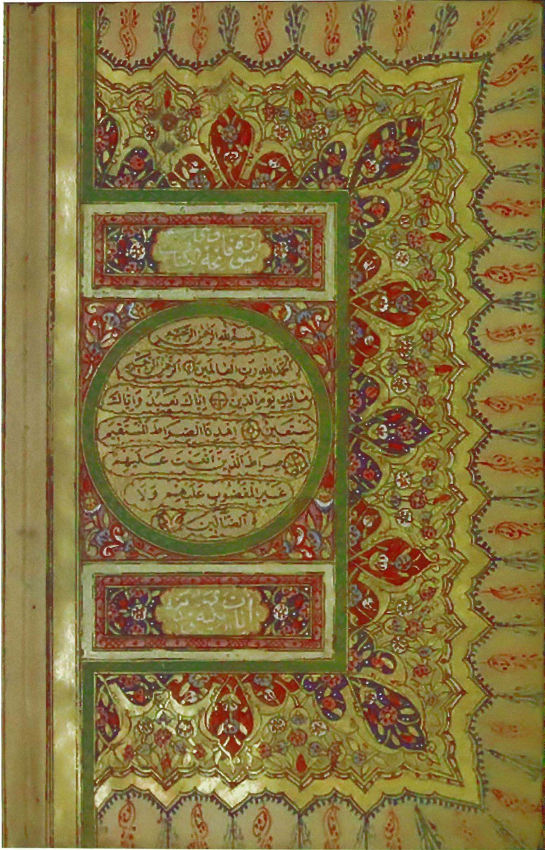 سورة فاتحة الكتاب
بسم الله الرحمن الرحيم
الحمد لله رب العالمين الرحمن الرحيم
مالك يوم الدين اياك نعبد واياك
نستعين اهدنا الصراط المستقيم
صراط الذين انعمت عليهم
غير المغضوب عليهم ولا
الضالين